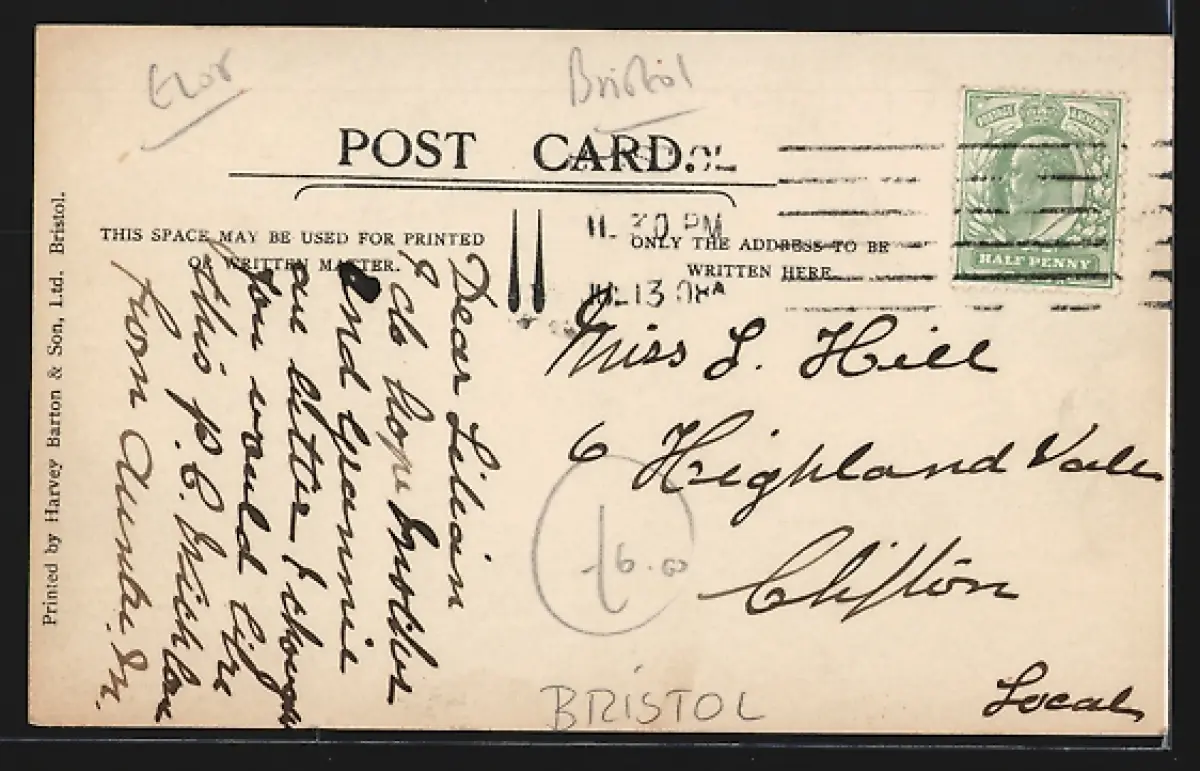 Bristol
POST CARD.
11. 30 PM
JUL 13 08
THIS SPACE MAY BE USED FOR PRINTED
OR WRITTEN MATTER.
ONLY THE ADDRESS TO BE
WRITTEN HERE.
HALF PENNY
Printed by Harvey Barton & Son, Ltd. Bristol.
Dear Lilian
I do hope
and Grannie
are better I though
you would like
this p.C.
from Auntie
Miss L. Hill
6 Highland Vale
Clifton
Local
6.00
BRISTOL